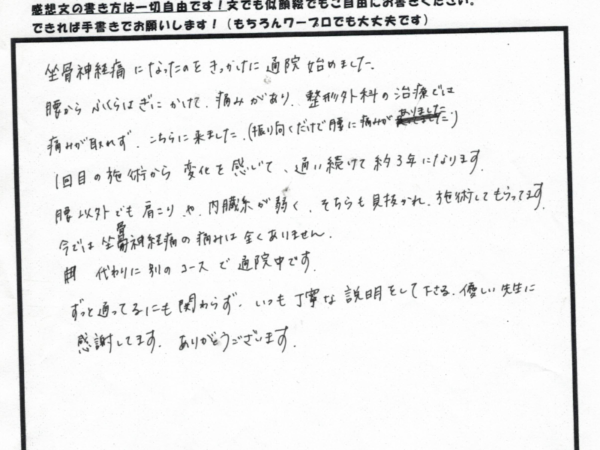 感想文の書き方は一切自由です！文でも似顔絵でもご自由にお書きください。
できれば手書きでお願いします！（もちろんワープロでも大丈夫です）
坐骨神経痛になったのをきっかけに通院始めました。
腰からふくらはぎにかけて、痛みがあり、整形外科の治療では
痛みが取れず、こちらに来ました。(振り向くだけで腰に痛みがありました)
1回目の施術から変化を感じて、通い続けて約3年になります。
腰以外でも肩こりや、内臓系が弱く、そちらも見抜かれ、施術してもらってます。
今では坐骨神経痛の痛みは全くありません。
代わりに別のコースで通院中です。
ずっと通ってるにも関わらず、いつも丁寧な説明をして下さる、優しい先生に
感謝してます。ありがとうございます。